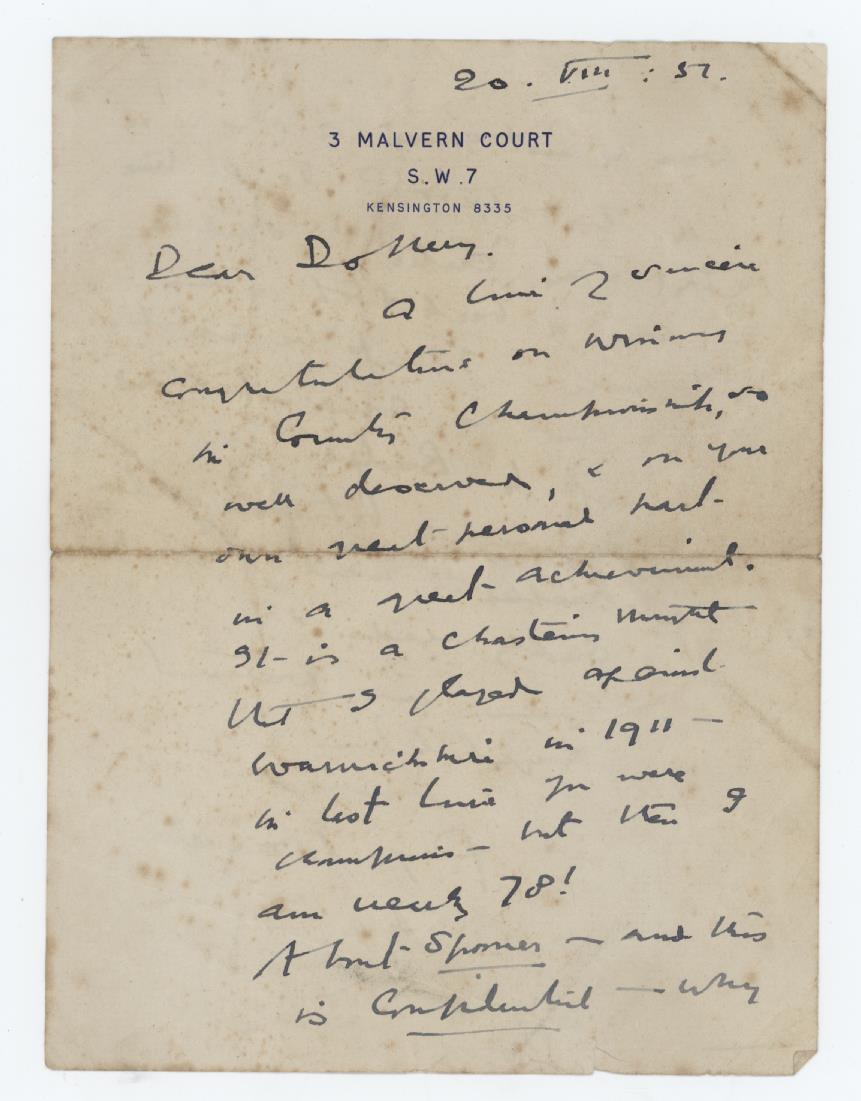 20. VIII : 51.
3 MALVERN COURT
S.W.7
KENSINGTON 8335
Dear Dollery.
A line of sincere
congratulations on winning
the County Championship, so
well deserved, & on your
own great personal part
in a great achievement.
It is a chastening thought
that I played against
Warwickshire in 1911 —
the last time you were
champions — but then I
am nearly 78!
About Spooner — and this
is Confidential — why